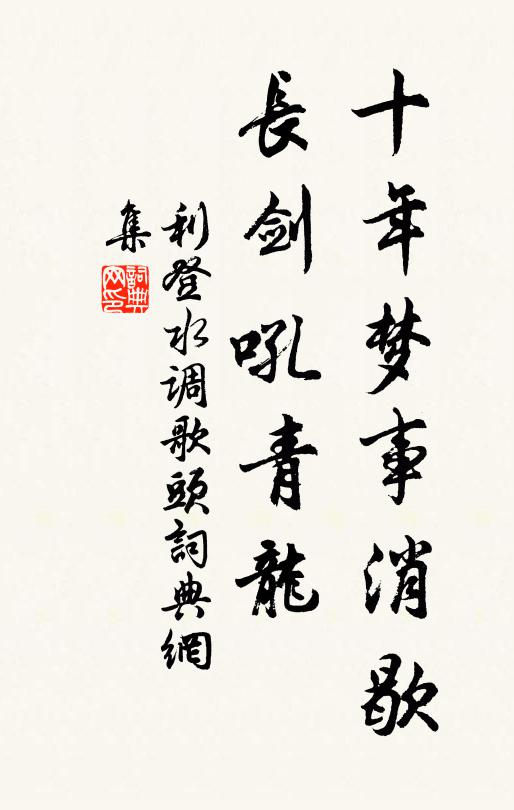 十年梦事消歇
長剑吼青龍
利登水调歌頭詞典網
集
詞典网印